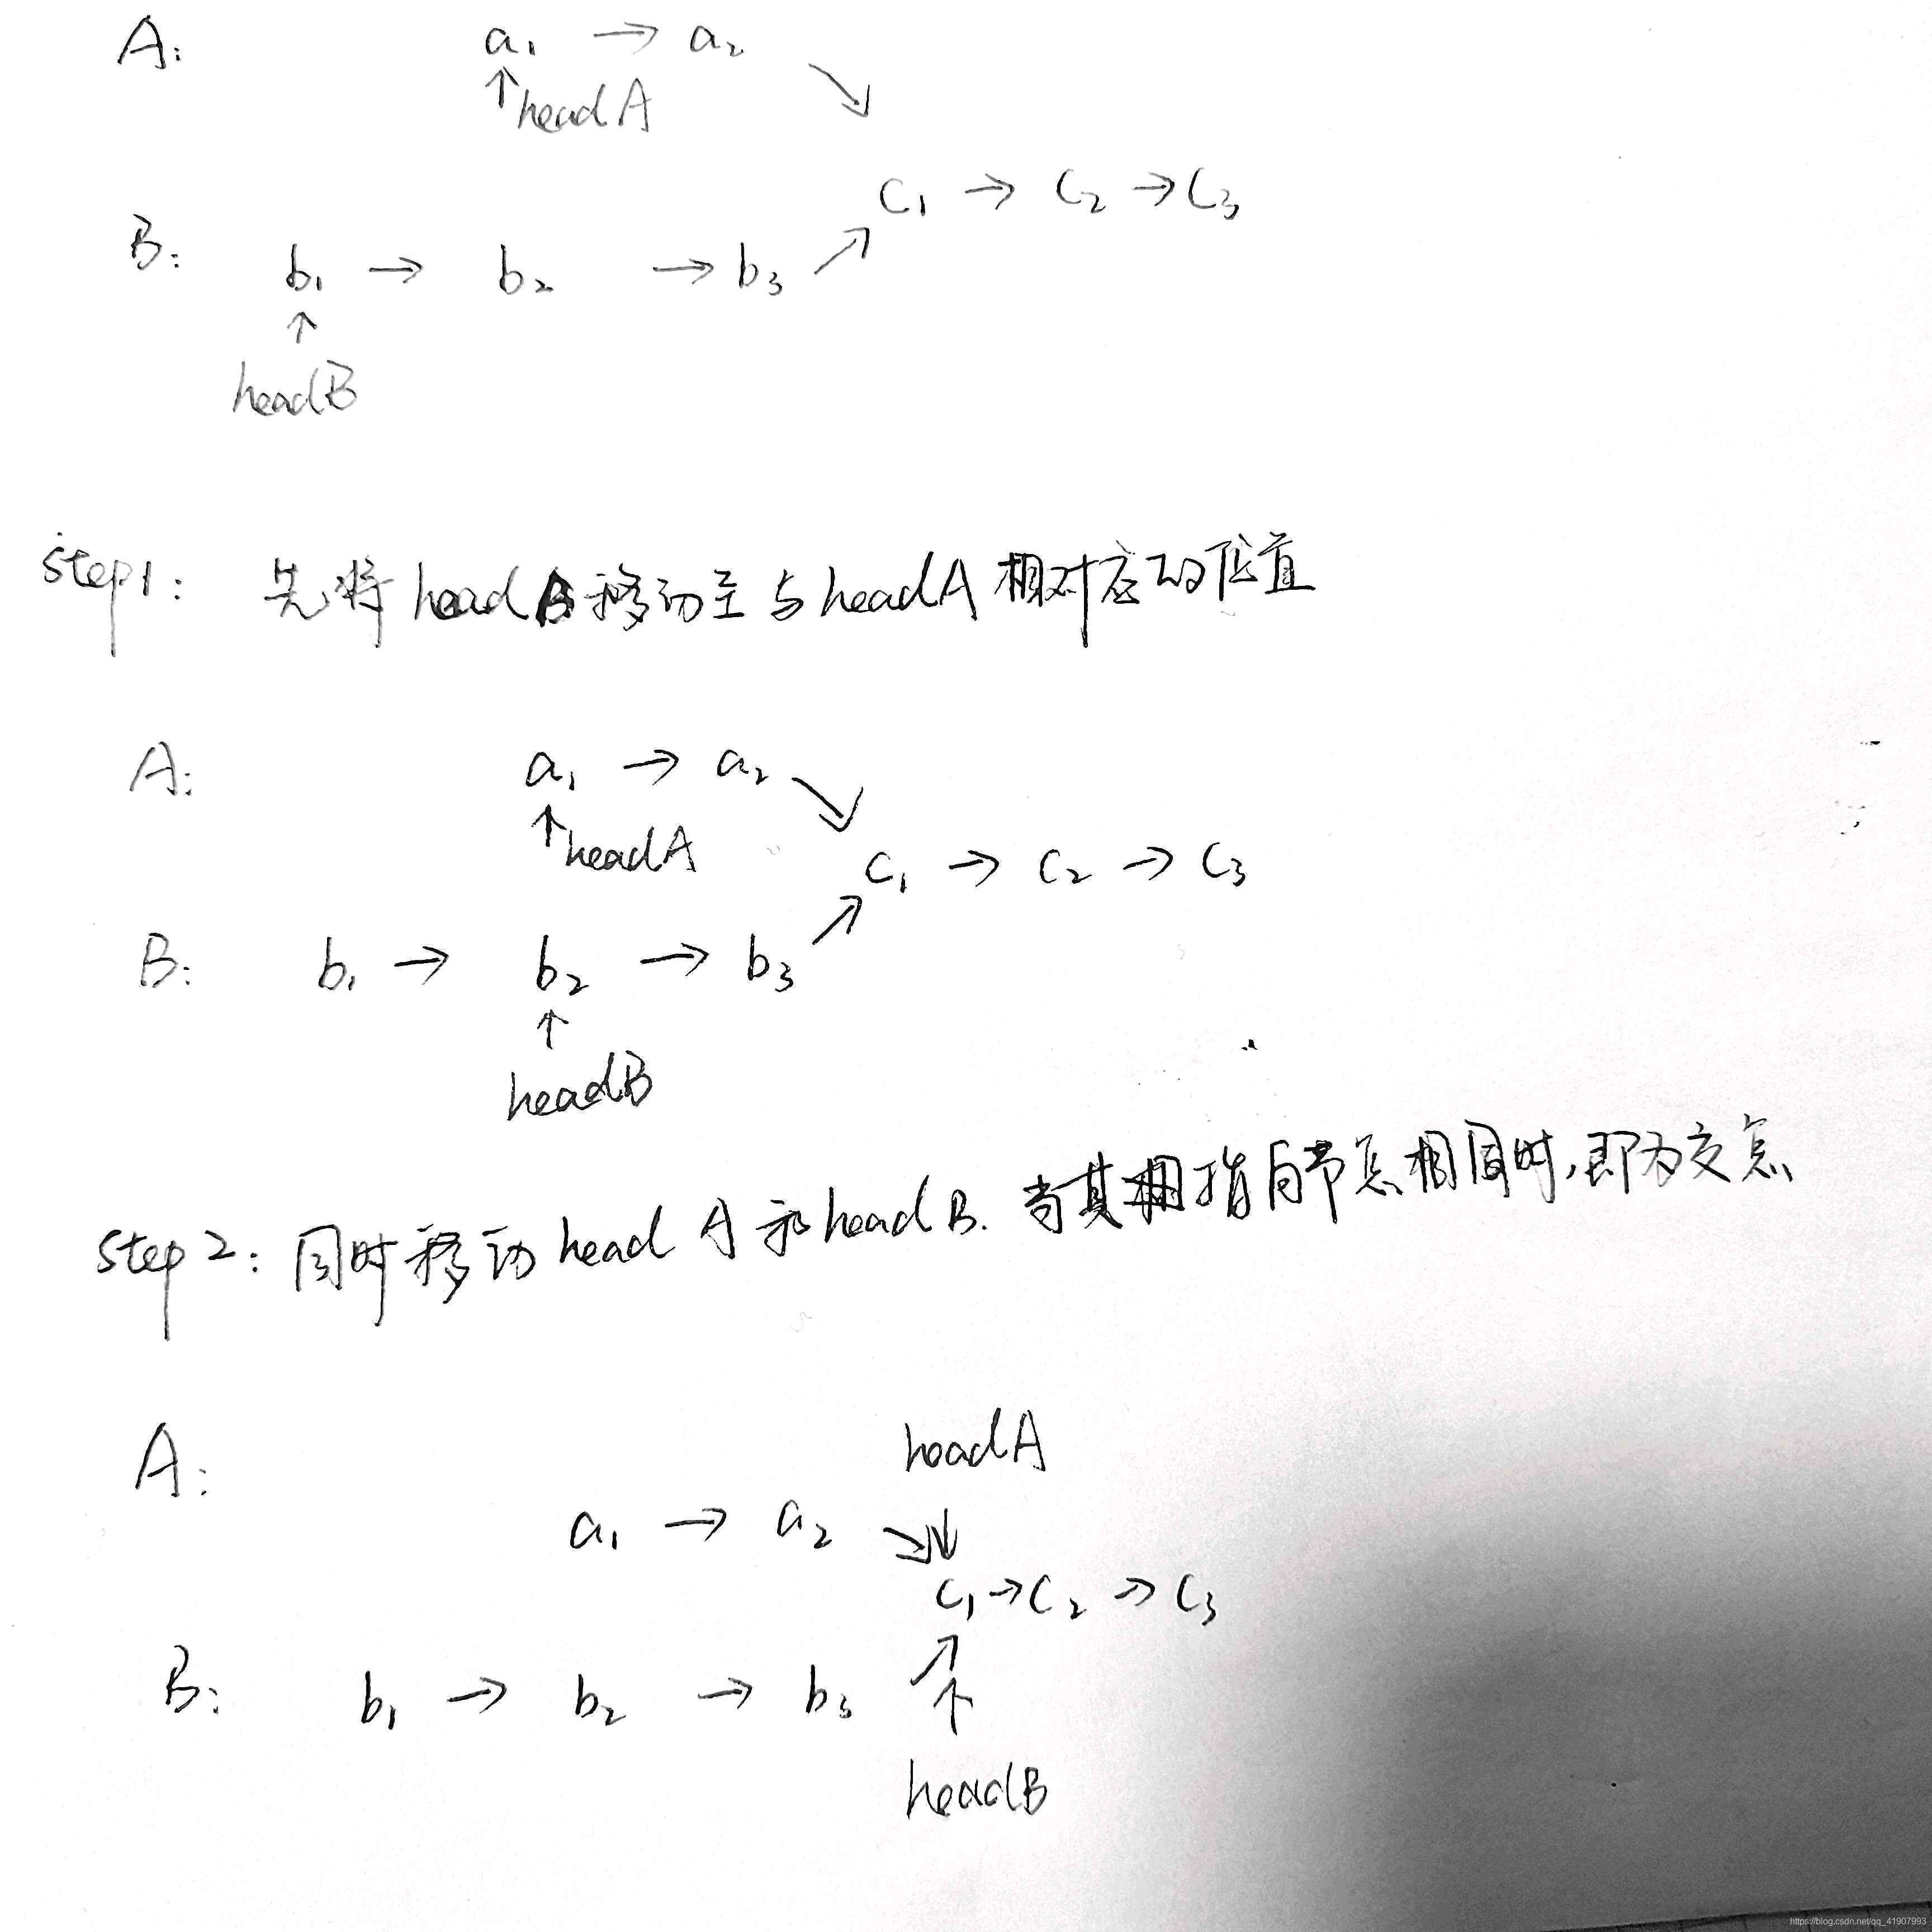 A: a₁ → a₂ ↘
↑headA
c₁ → c₂ → c₃
B: b₁ → b₂ → b₃ ↗
↑
headB
step1: 先将headB移动至与headA相对应的位置
A: a₁ → a₂ ↘
↑headA
c₁ → c₂ → c₃
B: b₁ → b₂ → b₃ ↗
↑
headB
step2: 同时移动headA和headB. 当其指向节点相同时,即为交点
A:
headA
a₁ → a₂ ↘↓
c₁→c₂ → c₃
B: b₁ → b₂ → b₃ ↗↑
headB
https://blog.csdn.net/qq_41907993